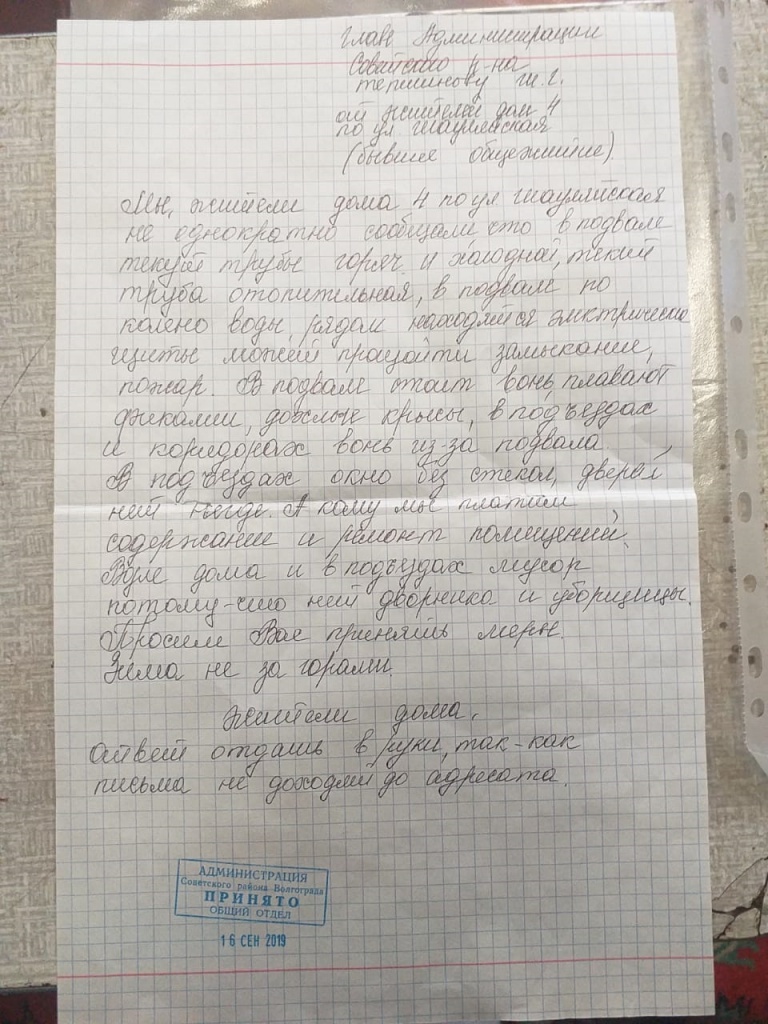 Главе Администрации
Советского р-на
от жителей дом 4
по ул Шаумянская
(бывшее общежитие)
Мы, жители дома 4 по ул Шаумянская
не однократно сообщали, что в подвале
текут трубы горяч. и холодной, текит
труба отопительная, в подвале по
колено воды, рядом находятся электрические
щиты может произойти замыкание,
пожар. В подвале стоит вонь, плавают
фикалии, дохлые крысы, в подъездах
и коридорах вонь из-за подвала.
В подъездах окно без стекол, дверей
нет нигде. А кому мы платим
содержание и ремонт помещений.
Воле дома и в подъездах мусор
потому-что нет дворника и уборщицы.
Просим Вас принять меры.
Зима не за горами.
Жители дома.
Ответ отдать в руки, так-как
письма не доходят до адресата.
АДМИНИСТРАЦИЯ
Советского района Волгограда
ПРИНЯТО
ОБЩИЙ ОТДЕЛ
16 СЕН 2019